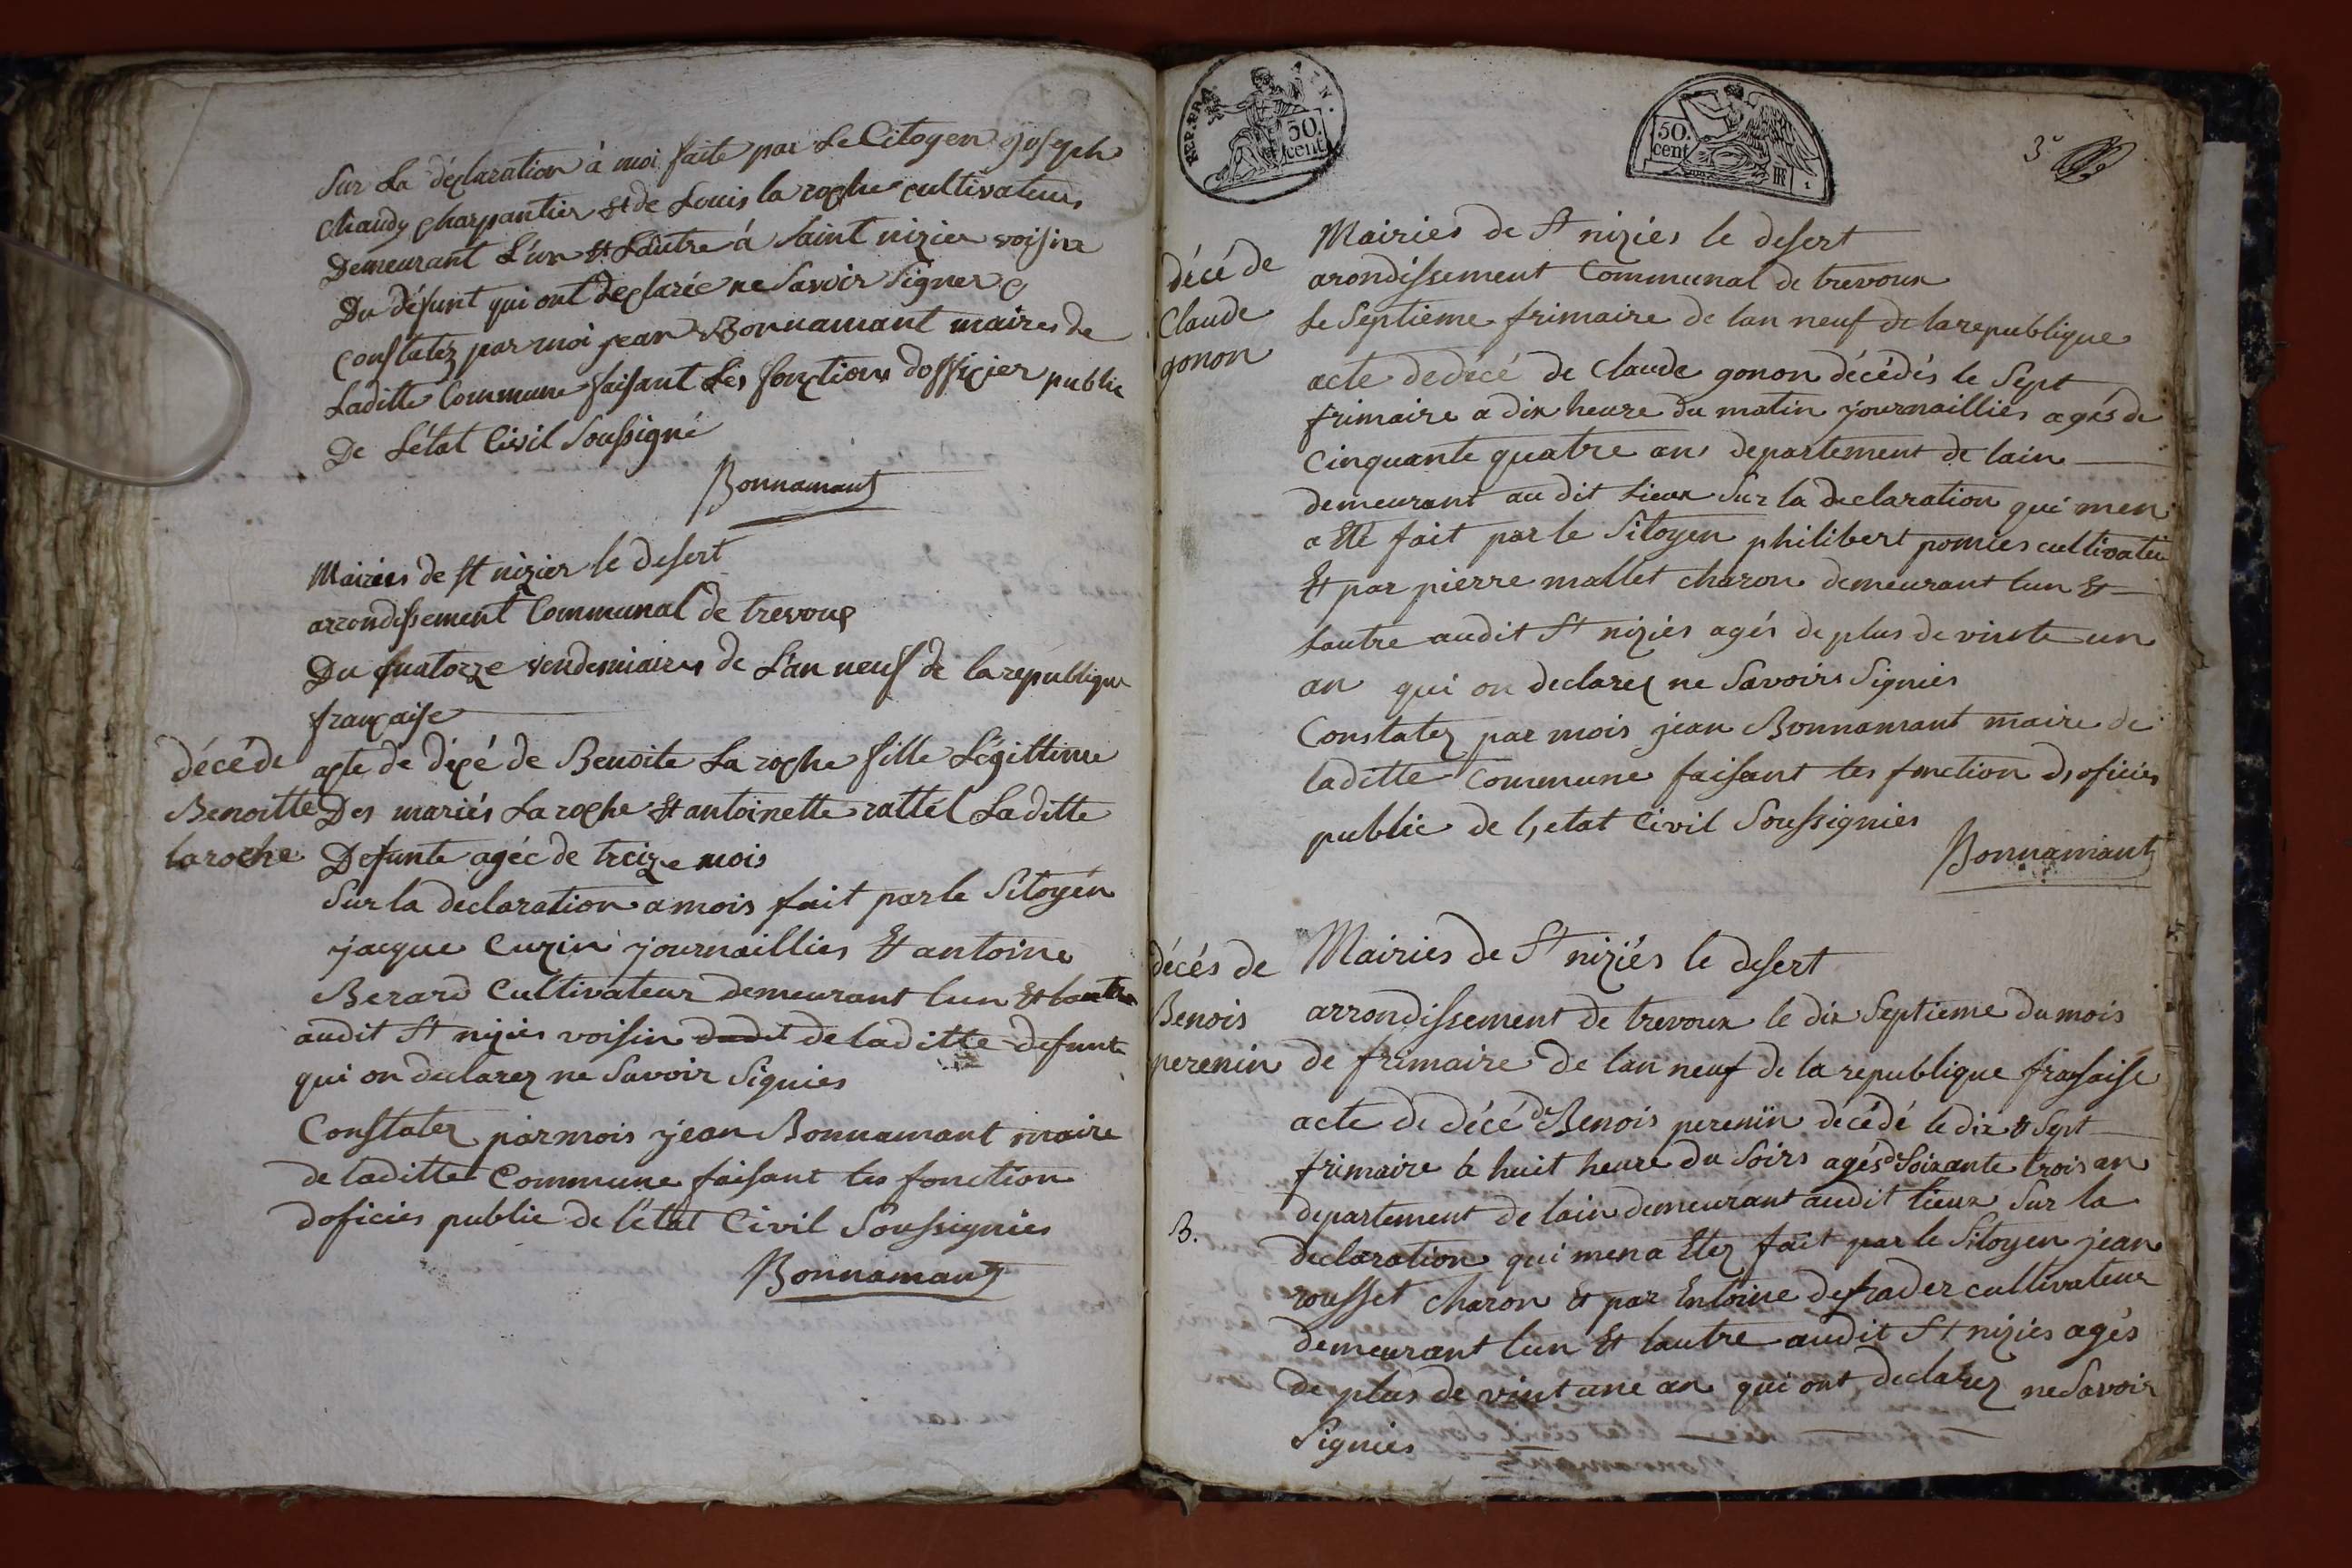 Sur La déclaration à moi faite par Le Citoyen joseph
Chaudy charpantier et de Louis la roche cultivateur
Demeurant L'un et L'autre à Saint nizier voisin
Du défunt qui ont déclarée ne Savoir Signer
constatéz par moi jean Bonnamant maires de
Laditte Commune faisant Les fonctions dofficier public
De L'état Civil Soussigné
Bonnamant
Mairies de st nizier le desert
arrondissement Communal de trevoux
Du quatorze vendemiaires de L'an neuf de la republique
française
décé de
Benoitte
laroche
acte de décé de Benoite La roche fille Légittime
Des mariés La roche et antoinette rattel Laditte
Defunte agée de treize mois
Sur la declaration a mois fait par le Sitoyen
jacque Cuzin journaillies et antoine
Berard Cultivateur demeurant lun et lautre
audit St nizies voisin dudit de laditte defunte
qui on declarez ne Savoir Signies
Constatez par mois jean Bonnamant maire
de laditte Commune faisant les fonction
doficies public de l'état Civil Soussignies
Bonnamant
REP. FRA.
50. cent
50. cent
3e
Mairies de St nizies le desert
arondissement Communal de trevoux
décé de
Claude
gonon
le Septieme frimaire de lan neuf de la republique
acte de décé de Claude gonon décédés le Sept
frimaire a dix heure du matin journaillies agés de
Cinquante quatre ans departement de lain
demeurant au dit Lieux Sur la declaration qui men
a Eté fait par le Sitoyen philibert pomies cultivateur
Et par pierre mallet charon demeurant lun Et
lautre audit St nizies agés de plus de vinte un
an qui on declarez ne Savoirs Signies
Constatez par mois jean Bonnamant maire de
laditte Commune faisant les fonction d,oficies
public de l,etat Civil Soussignies
Bonnamant
décés de
Benois
perenin
Mairies de St niziés le desert
arrondissement de trevoux le dix Septieme du mois
de frimaire de lan neuf de la republique fransaise
acte de décé de Benois perenin décédé le dix et Sept
frimaire a huit heure du Soirs agés de Soixante trois an
departement de lain demeurant audit lieux Sur la
B.
declaration qui men a Etez fait par le Sitoyen jean
rousset charon et par Entoine defrader cultivateur
demeurant lun Et lautre audit St nizies agés
de plus de vint une an qui ont declarez ne Savoir
Signies